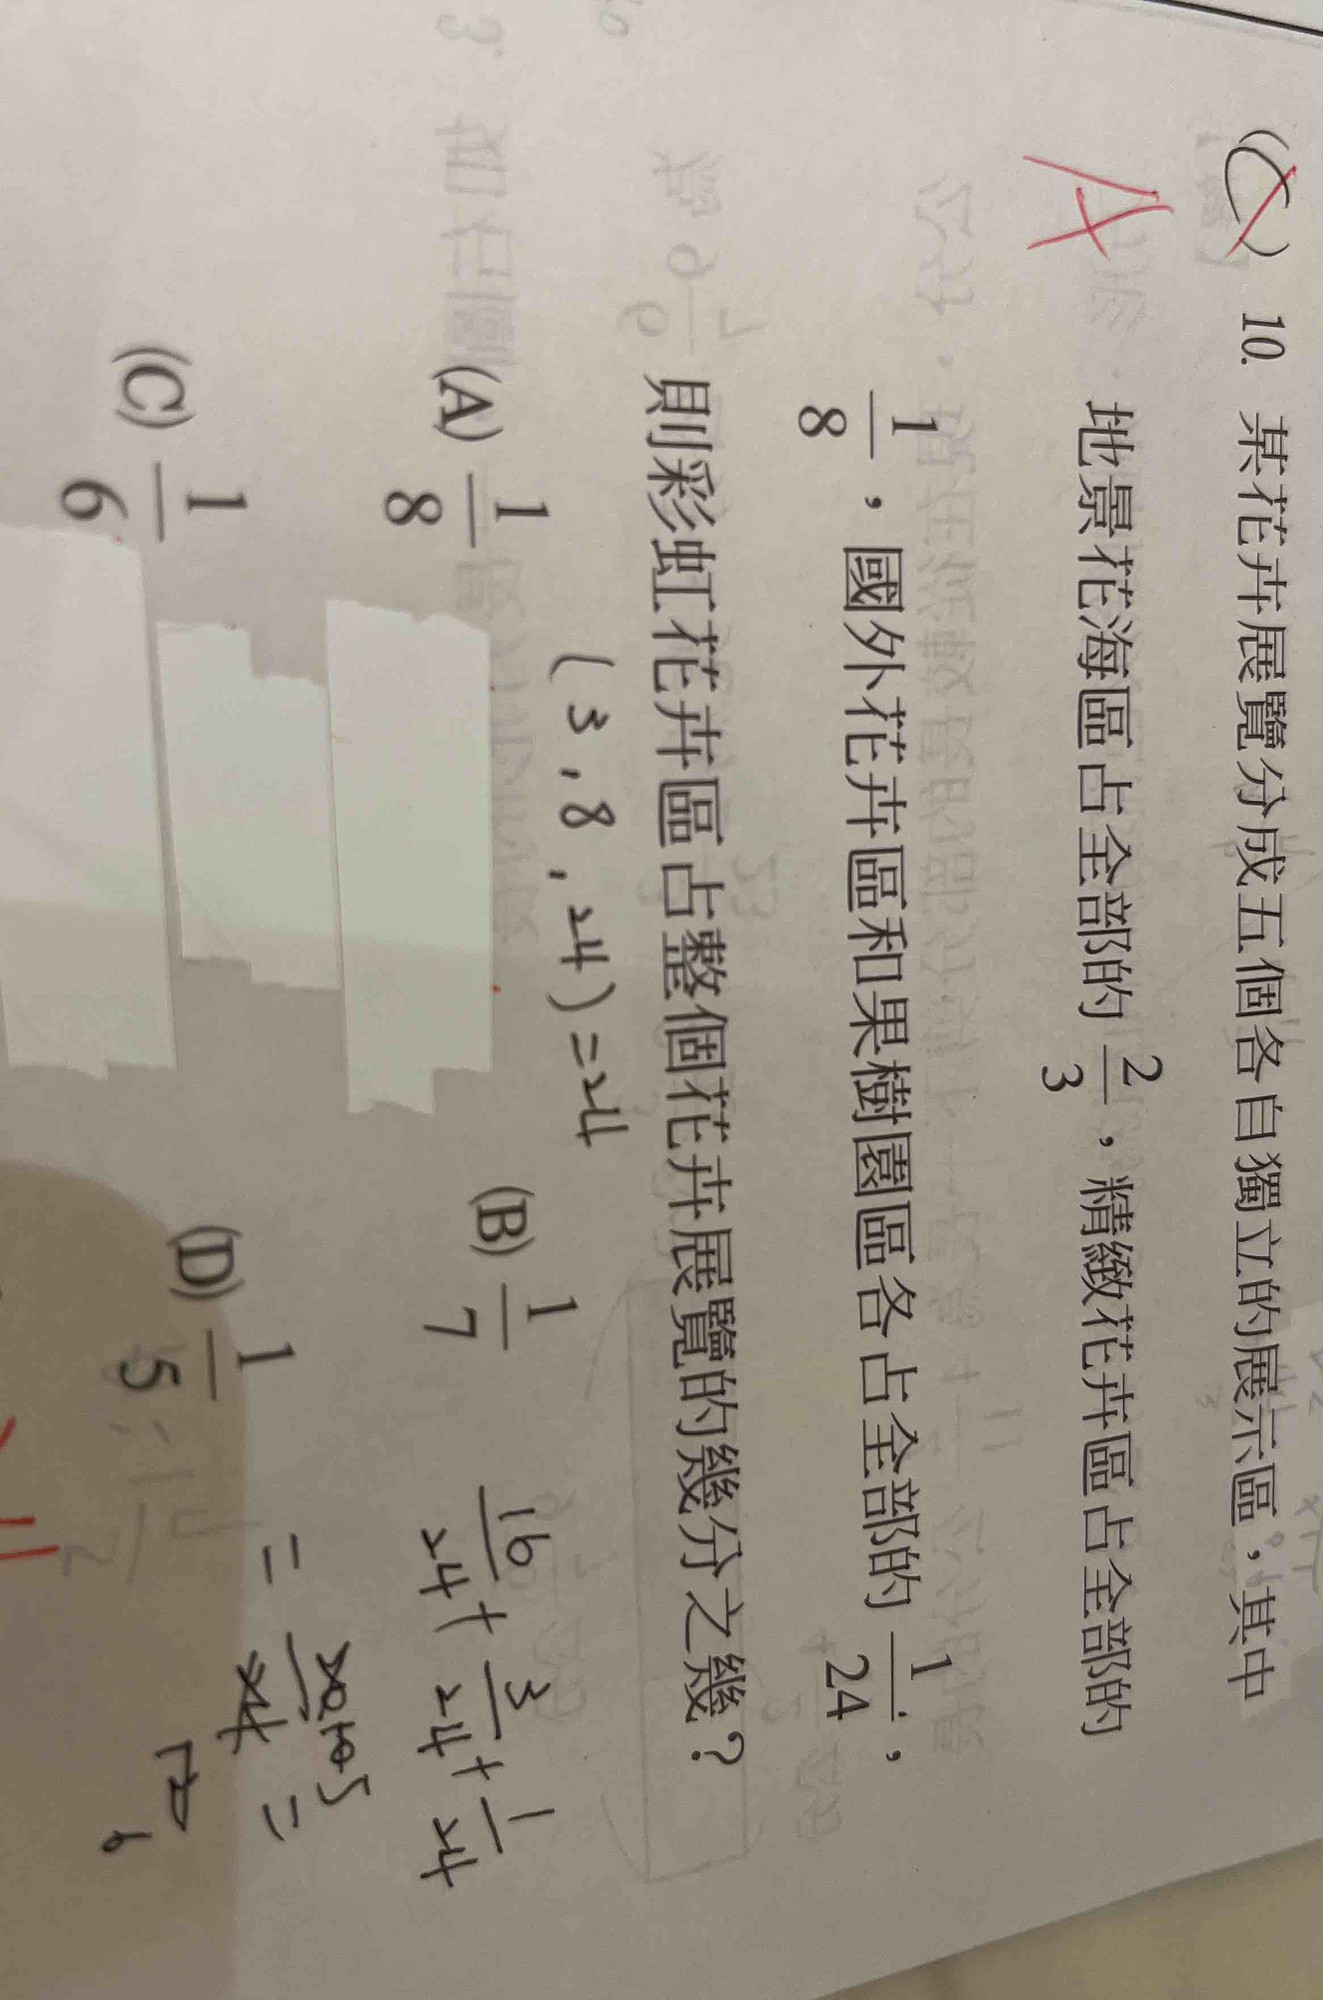 (C) 10. 某花卉展覽分成五個各自獨立的展示區，其中
地景花海區占全部的 2/3，精緻花卉區占全部的
1/8，國外花卉區和果樹園區各占全部的 1/24，
則彩虹花卉區占整個花卉展覽的幾分之幾？
(3,8,24)=24
(A) 1/8 (B) 1/7
16/24+3/24+1/24
(C) 1/6 (D) 1/5